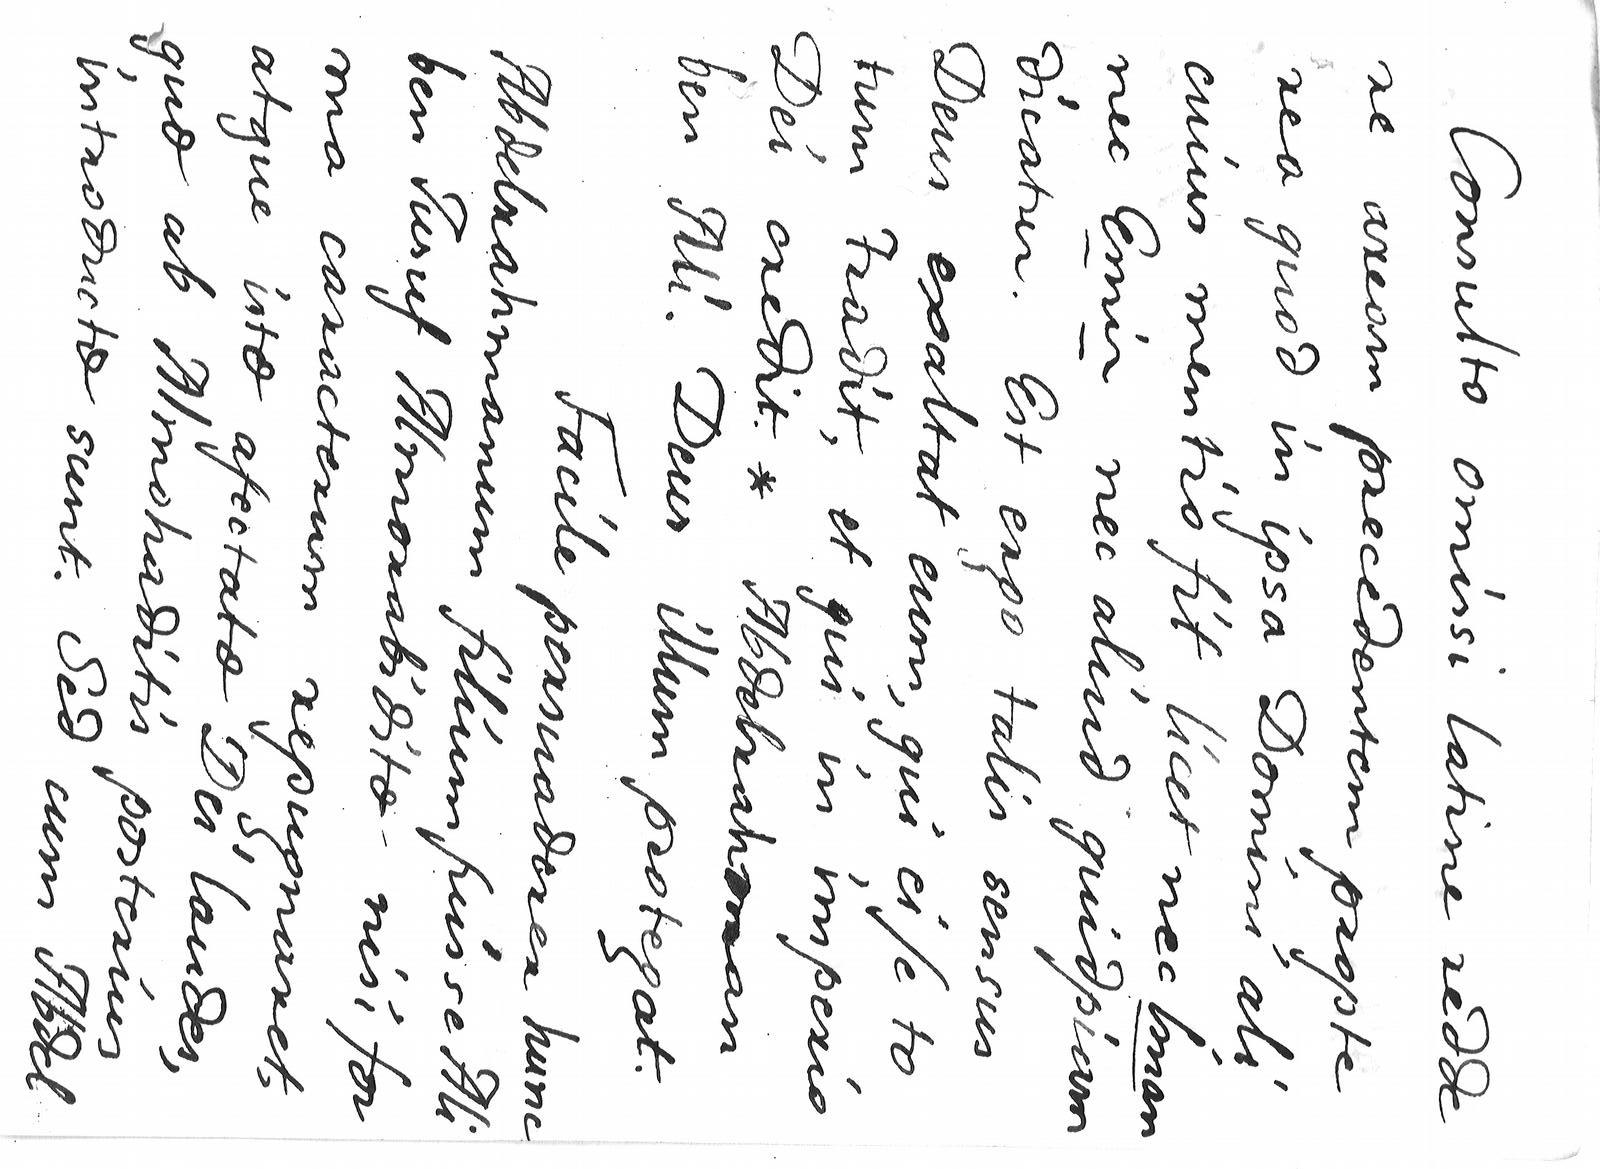 Consulto omisi latine redde
re aream precedentem propte
rea quod in ipsa Domini ali
cuius mentio fit licet nec Iman
nec Emir nec aliud quidpiam
dicatur. Est ergo talis sensus
Deus exaltat eum, qui ei se to
tum tradit, et qui in imperio
Dei credit. * Abdelrahman
ben Ali. Deus illum protegat.
Facile persuaderer hunc
Abdelrahmanum filium fuisse Ali
ben Jusuf Almorabidito - nisi for
ma caracterum repugnaret,
atque isto afectato Dei laudes,
quo ab Almohaditis posterius
introducto sunt. Sed cum Abdel